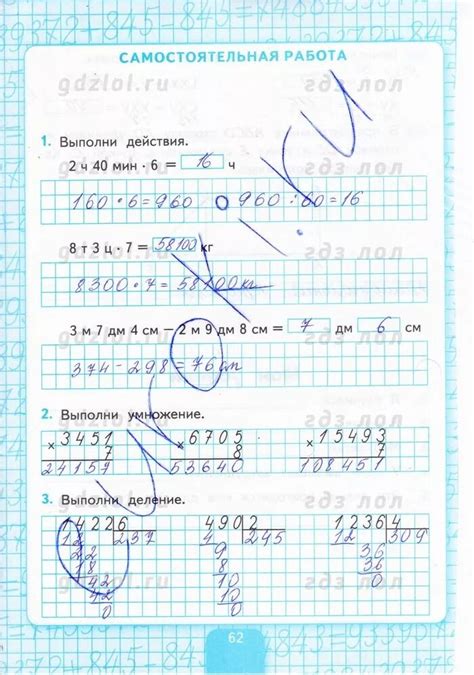 САМОСТОЯТЕЛЬНАЯ РАБОТА
gdzlol.ru гдз лол
1. Выполни действия.
2 ч 40 мин · 6 = 16 ч
160 · 6 = 960 960 : 60 = 16
8 т 3 ц · 7 = 58100 кг
8300 · 7 = 58100 кг
3 м 7 дм 4 см − 2 м 9 дм 8 см = 7 дм 6 см
374 − 298 = 76 см
2. Выполни умножение.
× 3451 × 6705 × 15493
7 8 7
24157 53640 108451
3. Выполни деление.
1422 6 490 2 1236 4
12 237 4 245 12 309
22 9 36
18 8 36
42 10 0
42 10
0 0
62